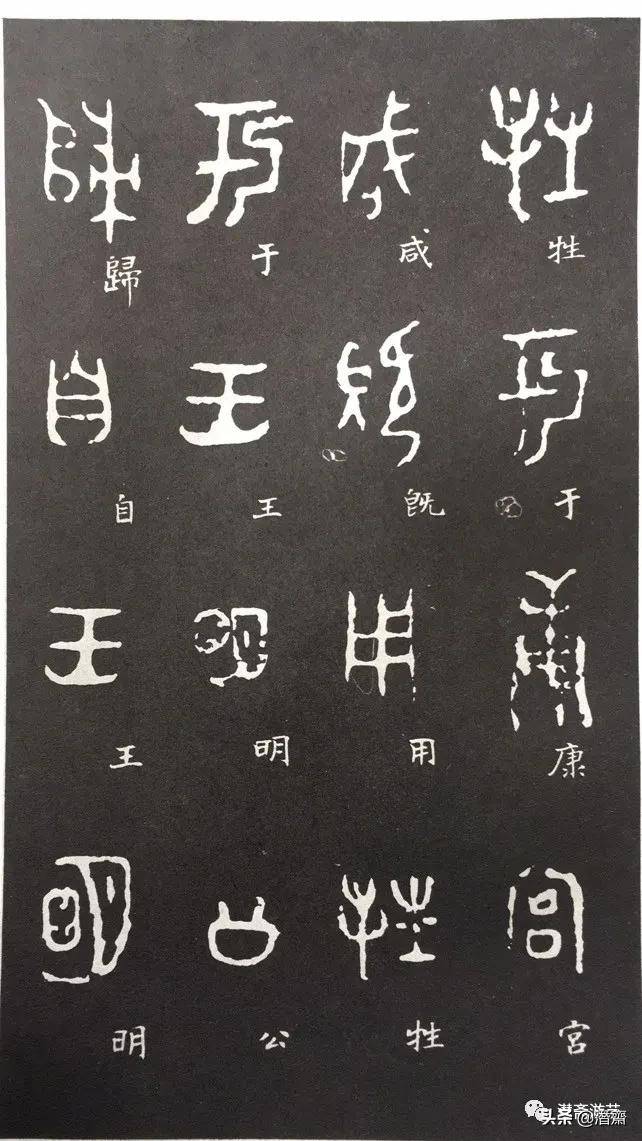 牲于康宮
咸既用牲
于王明公
歸自王明
头条 @潛齋